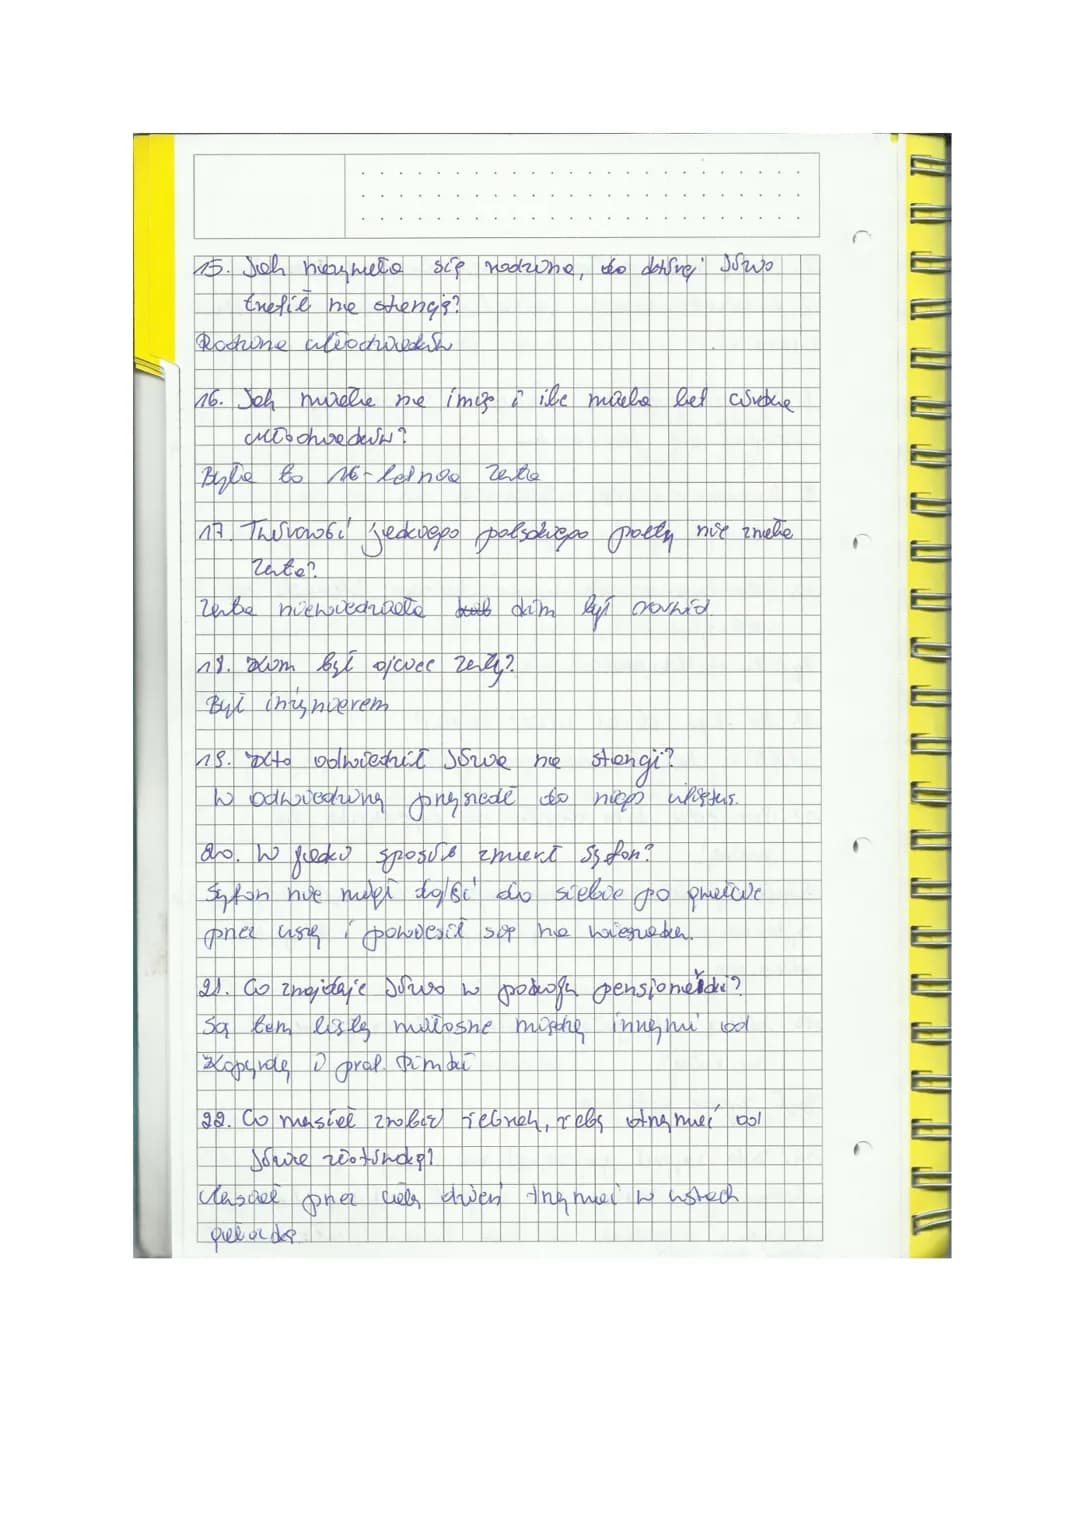 15. Jak nazywała się rodzina, do której Józio
trafił na stancję?
Rodzina Młodziaków
16. Jak miała na imię i ile miała lat córka
Młodziaków?
Była to 16-letnia Zuta
17. Twórowość jednego polskiego poety nie znała
Zuta?
Zuta niewiedziała kim był Norwid.
18. Kim był ojciec Zuty?
Był inżynierem
19. Kto odwiedził Józia na stancji?
W odwiedziny przyszedł do niego Miętus.
20. W jaki sposób zmarł Syfon?
Syfon nie mógł dojść do siebie po gwałcie
przez uszy i powiesił się na wieszaku.
21. Co znajduje Józio w pokoju pensjonarki?
Są tam listy miłosne między innymi od
Kopyrdy i prof. Pimki
22. Co musiał zrobić żebrak, żeby otrzymać od
Józia złotówkę?
Musiał przez cały dzień trzymać w ustach
gałązkę